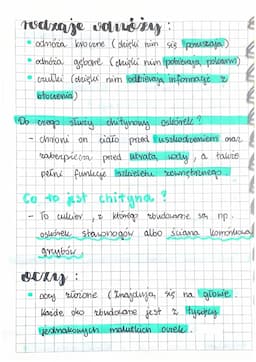 rodzaje odnóży :
• odnóża kroczne (dzięki nim się poruszają)
• odnóża gębowe (dzięki nim pobierają pokarm)
• czułki (dzięki nim odbierają informacje z
otoczenia)
Do czego służy chitynowy oskórek?
- chroni on ciało przed uszkodzeniem oraz
zabezpiecza przed utratą wody, a także
pełni funkcję szkieletu zewnętrznego.
Co to jest chityna?
- To cukier, z którego zbudowane są np.
oskórek stawonogów albo ściana komórkowa
grzybów.
oczy :
• oczy złożone (znajdują się na głowie.
Każde oko zbudowane jest z tysięcy
jednakowych malutkich oczek.